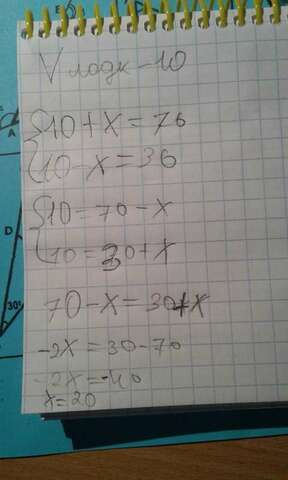 V лодк – 10
{10 + x = 76
10 – x = 36
{10 = 70 – x
10 = 30 + x
70 – x = 30 + x
-2x = 30 - 70
-2x = -40
x = 20
A
D
30°